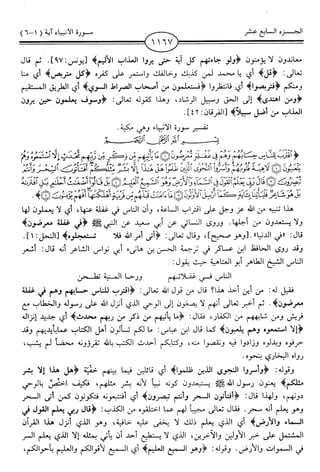 الجـزء السابع عشر
١١٦٧
سورة الأنبياء آية (١-٦)
معاندون لا يؤمنون ﴿ولو جاءتهم كل آية حتى يروا العذاب الأليم﴾ [يونس: ٩٧]. ثم قال
تعالى: ﴿قل﴾ أي يا محمد لمن كذبك وخالفك واستمر على كفره ﴿كل متربص﴾ أي منا
ومنكم ﴿فتربصوا﴾ أي فانتظروا ﴿فستعلمون من أصحاب الصراط السوي﴾ أي الطريق المستقيم
﴿ومن اهتدى﴾ إلى الحق وسبيل الرشاد، وهذا كقوله تعالى: ﴿وسوف يعلمون حين يرون
العذاب من أضل سبيلا﴾ [الفرقان: ٤٢].
تفسير سورة الأنبياء وهي مكية.
بسم الله الرحمن الرحيم
﴿اقترب للناس حسابهم وهم في غفلة معرضون ۝ ما يأتيهم من ذكر من ربهم محدث إلا استمعوه وهم
يلعبون ۝ لاهية قلوبهم وأسروا النجوى الذين ظلموا هل هذا إلا بشر مثلكم أفتأتون السحر وأنتم
تبصرون ۝ قال ربي يعلم القول في السماء والأرض وهو السميع العليم ۝ بل قالوا أضغاث أحلام بل افتراه
بل هو شاعر فليأتنا بآية كما أرسل الأولون ۝ ما آمنت قبلهم من قرية أهلكناها أفهم يؤمنون ۝﴾
هذا تنبيه من الله عز وجل على اقتراب الساعة، وأن الناس في غفلة عنها، أي لا يعملون لها
ولا يستعدون من أجلها. وروى النسائي عن أبي سعيد عن النبي ﷺ ﴿في غفلة معرضون﴾
قال: «في الدنيا». [وهو صحيح]. وقال تعالى: ﴿أتى أمر الله فلا تستعجلوه﴾ [النحل: ١].
وقد روى الحافظ ابن عساكر في ترجمة الحسن بن هانىء أبي نواس الشاعر أنه قال: أشعر
الناس الشيخ الطاهر أبو العتاهية حيث يقول:
الناس في غفلاتهم ورحا المنية تطحن
فقيل له: من أين أخذ هذا؟ قال من قول الله تعالى: ﴿اقترب للناس حسابهم وهم في غفلة
معرضون﴾. ثم أخبر تعالى أنهم لا يصغون إلى الوحي الذي أنزل الله على رسوله والخطاب مع
قريش ومن شابههم من الكفار، فقال: ﴿ما يأتيهم من ذكر من ربهم محدث﴾ أي جديد إنزاله
﴿إلا استمعوه وهم يلعبون﴾ كما قال ابن عباس: ما لكم تسألون أهل الكتاب عمابأيديهم وقد
حرفوه وبدلوه وزادوا فيه ونقصوا منه، وكتابكم أحدث الكتب بالله تقرؤونه محضاً لم يشب،
ورواه البخاري بنحوه.
وقوله: ﴿وأسروا النجوى الذين ظلموا﴾ أي قائلين فيما بينهم خفية ﴿هل هذا إلا بشر
مثلكم﴾ يعنون رسول الله ﷺ يستبعدون كونه نبياً لأنه بشر مثلهم، فكيف اختص بالوحي
دونهم، ولهذا قال: ﴿أفتأتون السحر وأنتم تبصرون﴾ أي أفتتبعونه فتكونون كمن أتى السحر
وهو يعلم أنه سحر. فقال تعالى مجيباً لهم عما اختلقوه من الكذب: ﴿قال ربي يعلم القول في
السماء والأرض﴾ أي الذي يعلم ذلك لا يخفى عليه خافية، وهو الذي أنزل هذا القرآن
المشتمل على خبر الأولين والآخرين، الذي لا يستطيع أحد أن يأتي بمثله إلا الذي يعلم السر
في السموات والأرض. وقوله: ﴿وهو السميع العليم﴾ أي السميع لأقوالكم والعليم بأحوالكم،